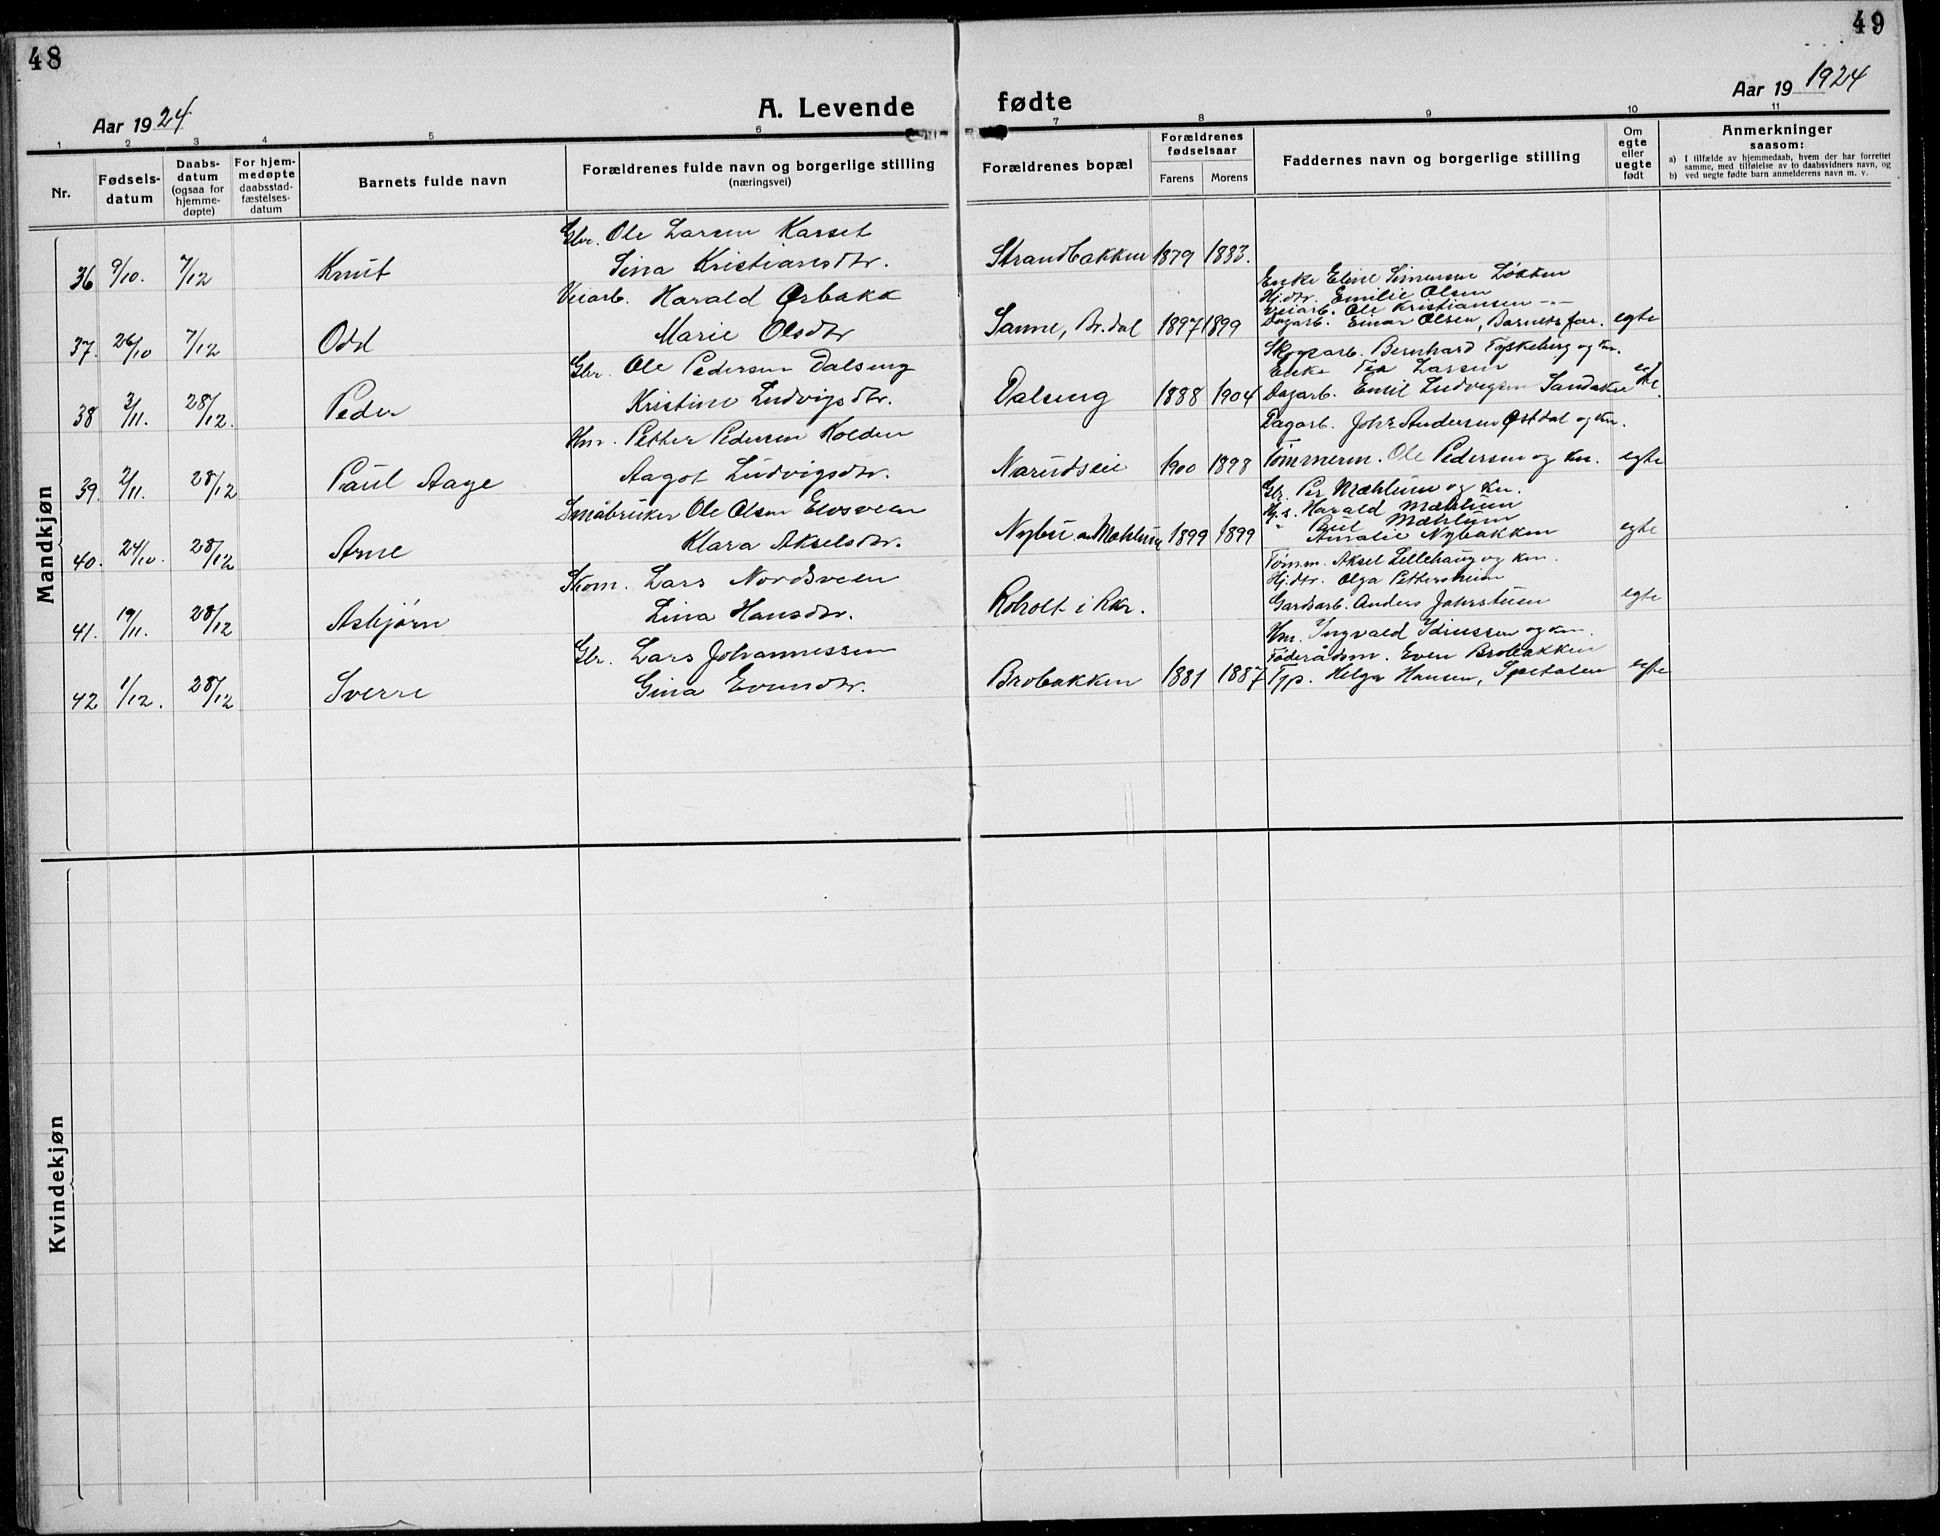 48
49
Aar 1924
A. Levende
fødte
Aar 19 1924
1 2 3 4 5 6 7 8 9 10 11
Nr.
Fødsels-
datum
Daabs-
datum
(ogsaa for
hjemme-
døpte)
For hjem-
medøpte
daabsstad-
fæstelses-
datum
Barnets fulde navn
Forældrenes fulde navn og borgerlige stilling
(næringsvei)
Forældrenes bopæl
Forældrenes
fødselsaar
Farens Morens
Faddernes navn og borgerlige stilling
Om
egte
eller
uegte
født
Anmerkninger
saasom:
a) I tilfælde av hjemmedaab, hvem der har forrettet
samme, med tilføielse av to daabsvidners navn, og
b) ved uegte fødte barn anmelderens navn m. v.
Mandkjøn
36 9/10. 7/12 Knut
Gbr. Ole Larsen Karset
Sina Kristiansdtr.
Strandbakken 1879 1883.
37. 26/10 7/12 Odd
Veiarb. Harald Ørbakk
Marie Olsdtr
Sanne, Br.dal 1897 1899
Enke Eline Simensen Løkken
Hj.dtr. Emilie Olsen
Veiarb. Ole Kristiansen -"-
Dagarb. Einar Olsen, Barnets far. egte
38 3/11. 28/12. Peder
Gbr. Ole Pedersen Dalseng
Kristine Ludvigsdtr.
Dalseng 1888 1904
Skogsarb. Bernhard Tyskeberg og kn.
Enke Tea Larsen
Dagarb. Emil Ludvigsen Sandaker egte.
39. 2/11. 28/12 Paul Aage
Hm. Petter Pedersen Kolden
Aagot Ludvigsdtr.
Narudseie 1900 1898
Dagarb. Joh. Andersen Østdal og kn.
Tømmerm. Ole Pedersen og kn. egte
40. 24/10. 28/12 Arne
Småbruker Ole Olsen Elvsveen
Klara Akselsdtr.
Nybu u. Mæhlum 1899 1899
Gbr. Per Mæhlum og kn.
Hj.s. Harald Mæhlum
" Paul Mæhlum
Amalie Nybakken egte
41. 19/11. 28/12 Asbjørn
Skom. Lars Nordsveen
Lina Hansdtr.
Roholt i Rkr.
Tømm. Aksel Lillehaug og kn.
Hj.dtr. Olga Petterstuen
Gardsarb. Anders Jahrstuen egte
42 1/12. 28/12 Sverre
Gbr. Lars Johannessen
Gina Evensdtr.
Brobakken 1881 1887
Hm. Ingvald Idriussen og kn.
Føderådsm. Even Brobakken
Tjp. Helga Hansen, Spetalen egte
Kvindekjøn